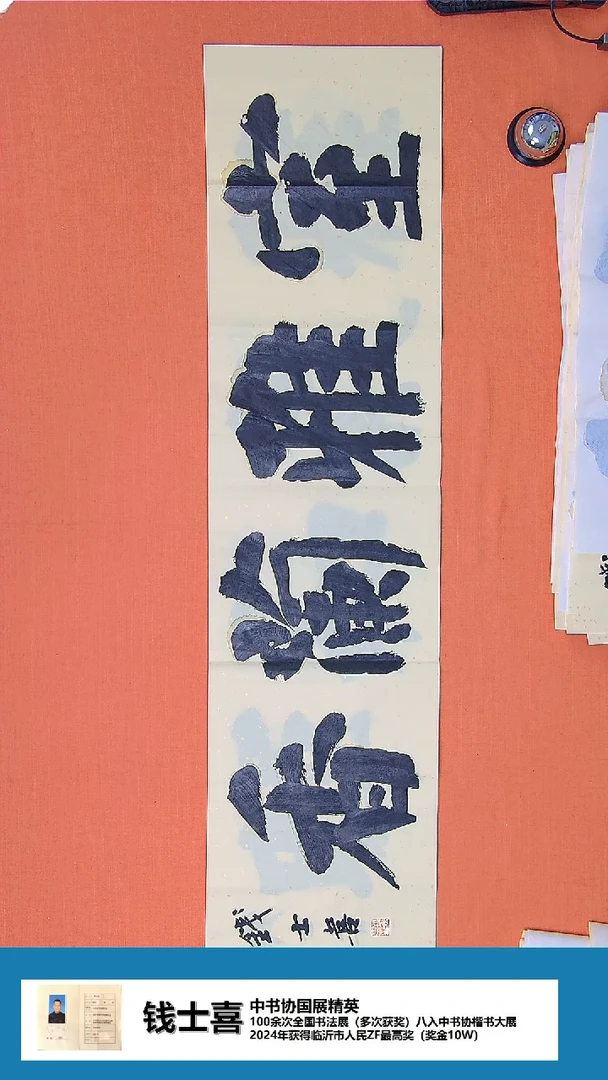 室雅蘭香
錢士喜
钱士喜
中书协国展精英
100余次全国书法展（多次获奖）八入中书协楷书大展
2024年获得临沂市人民ZF最高奖（奖金10W）